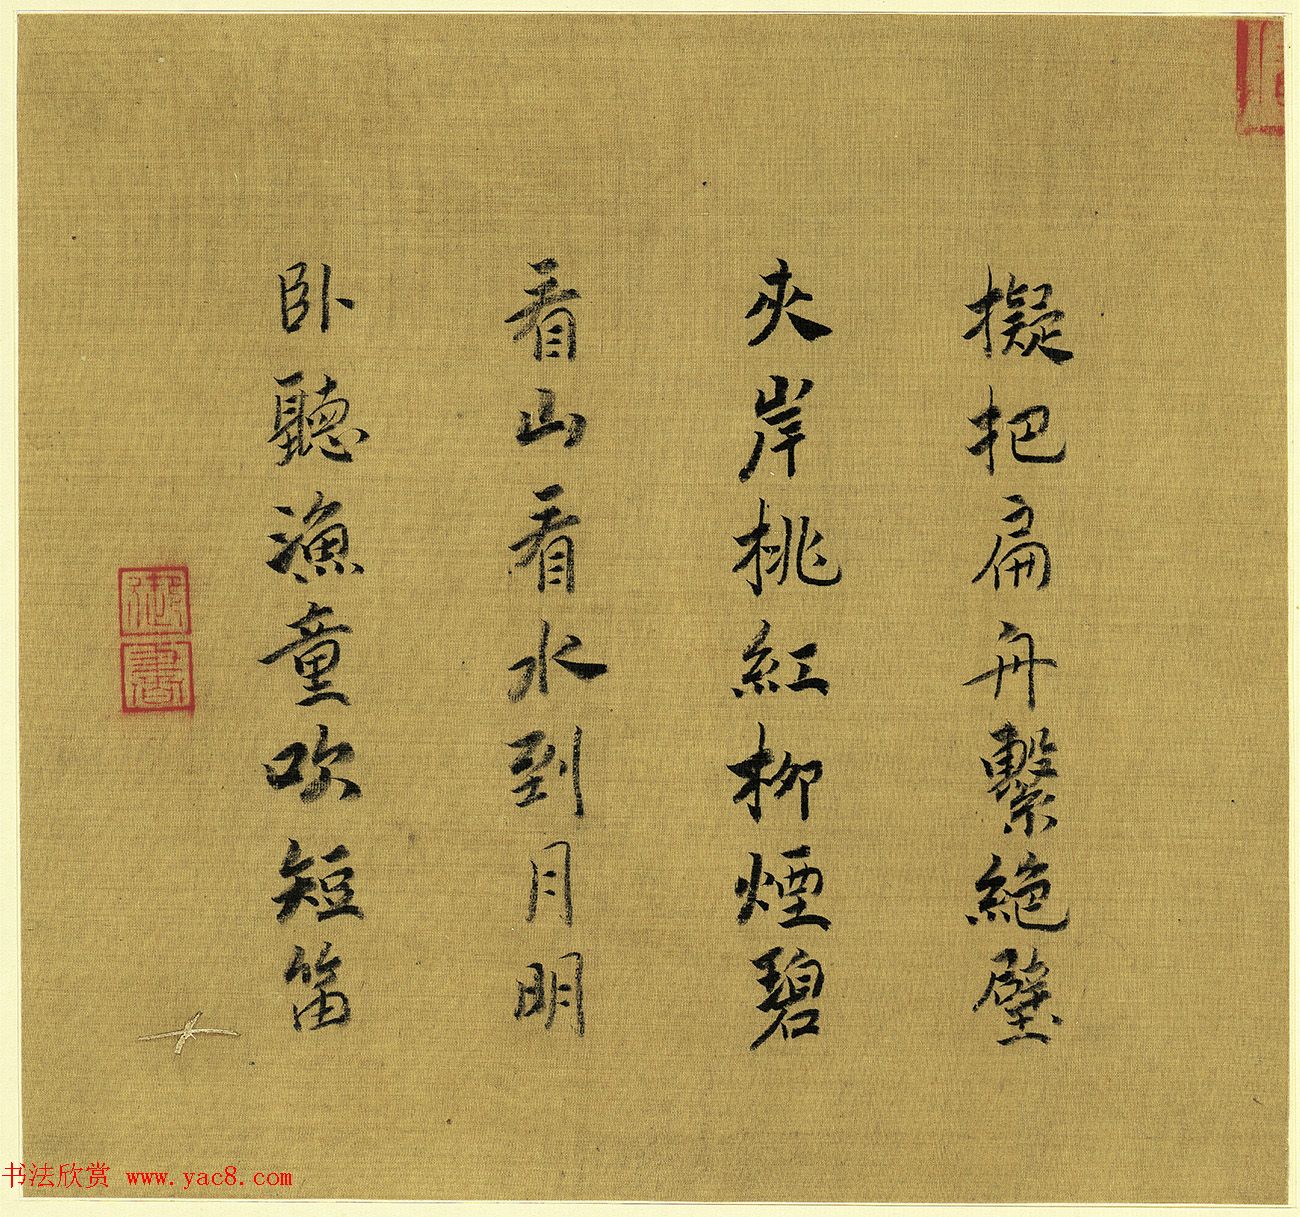 擬把扁舟繫絕壁
夾岸桃紅柳煙碧
看山看水到月明
臥聽漁童吹短笛
御書
书法欣赏 www.yac8.com